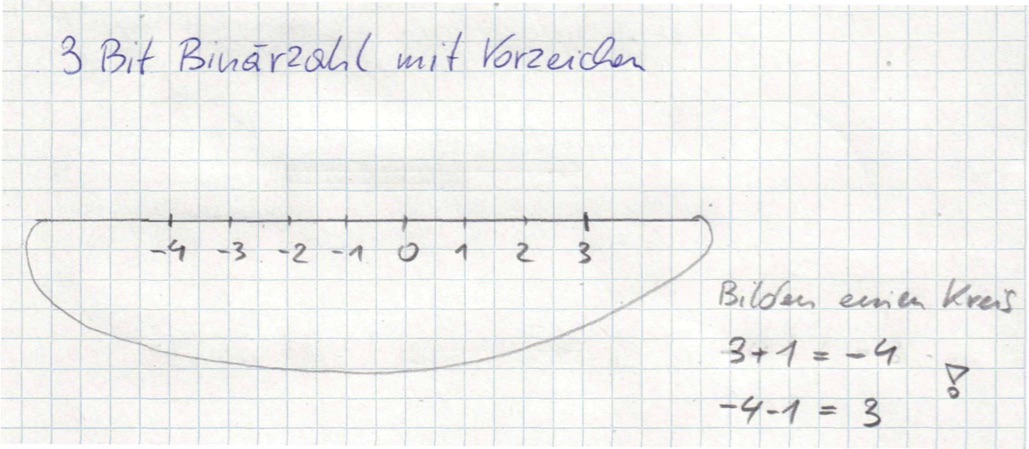 3 Bit Binärzahl mit Vorzeichen
-4 -3 -2 -1 0 1 2 3
Bilden einen Kreis
3+1 = -4
-4-1 = 3
!